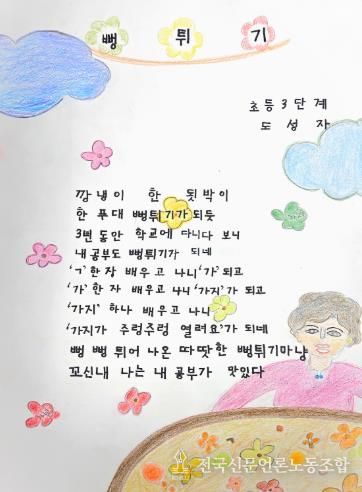 뻥 튀 기
초등3단계
도성자
깡냉이 한 됫박이
한 푸대 뻥튀기가 되듯
3번 동안 학교에 다니다 보니
내 공부도 뻥튀기가 되네
'ㄱ' 한 자 배우고 나니 '가' 되고
'가' 한 자 배우고 나니 '가지'가 되고
'가지' 하나 배우고 나니
'가지가 주렁주렁 열려요'가 되네
뻥 뻥 튀어 나온 따땃한 뻥튀기마냥
꼬신내 나는 내 공부가 맛있다
전국신문언론노동조합